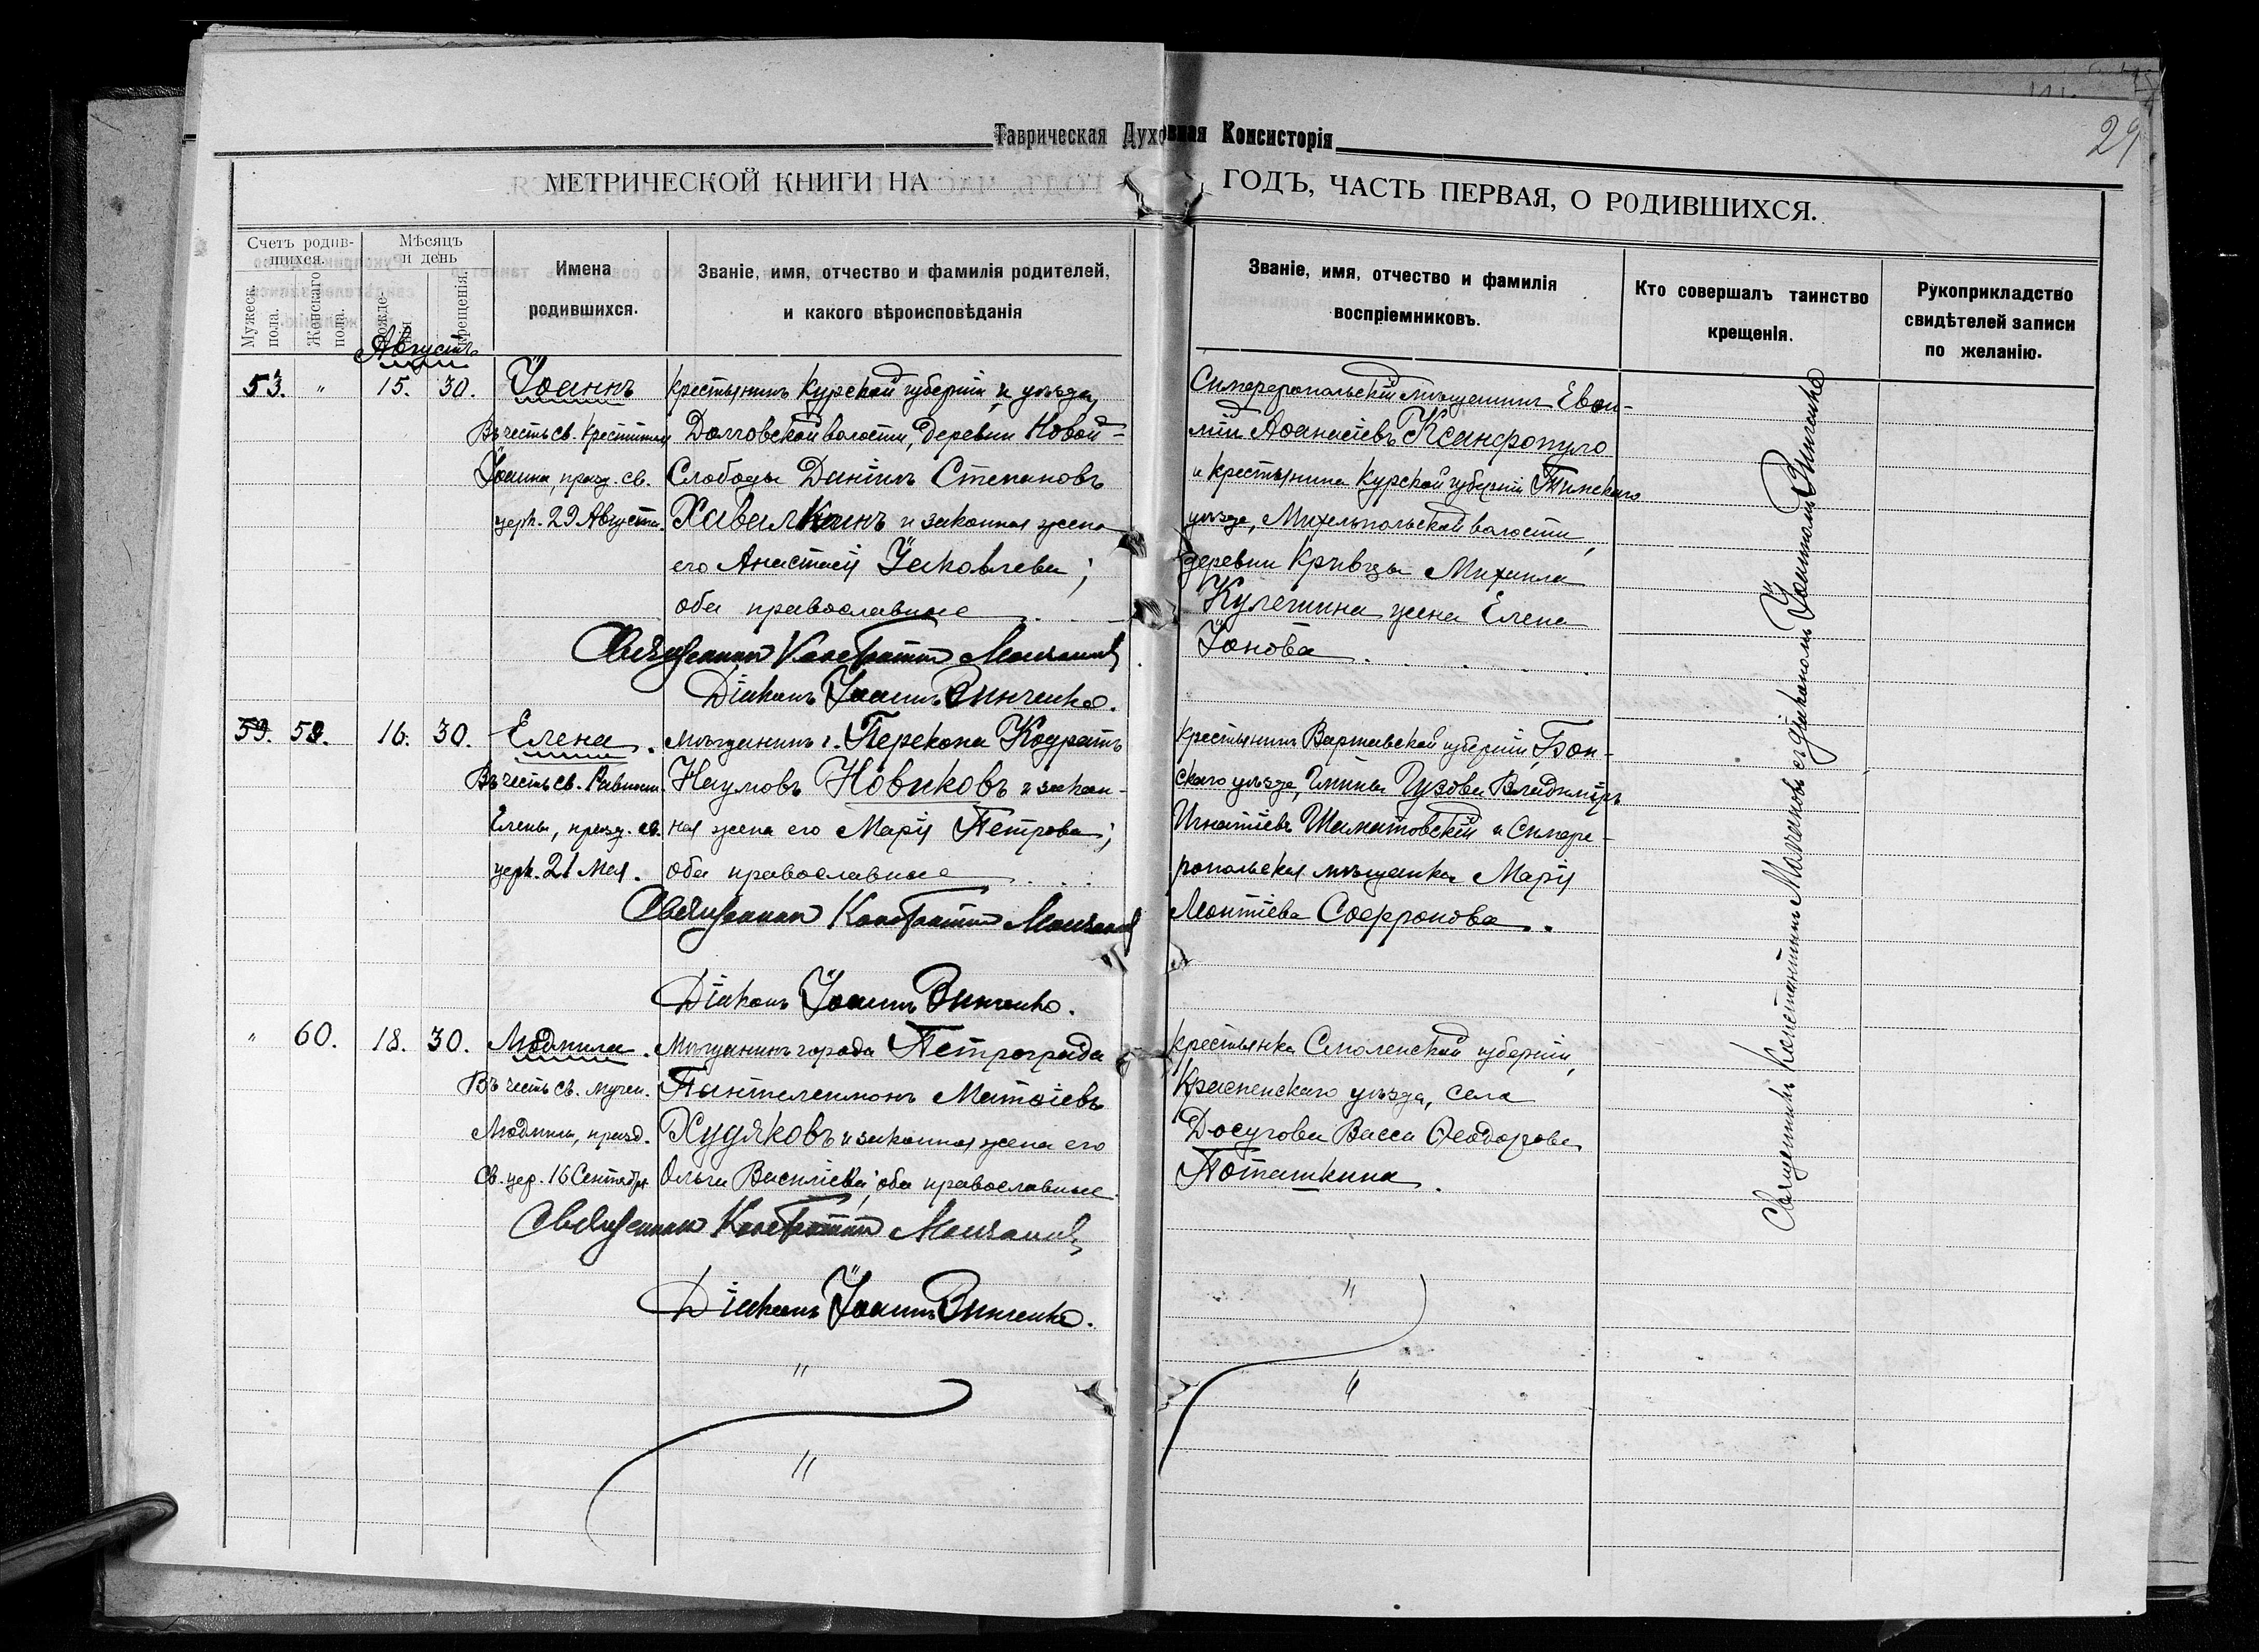 29
Таврическая Духовная Консисторія
МЕТРИЧЕСКОЙ КНИГИ НА ГОДЪ, ЧАСТЬ ПЕРВАЯ, О РОДИВШИХСЯ.
Счетъ родив-
шихся.
Мужеск. пола.
Женскаго пола.
Мѣсяцъ
и день
крещенія.
Имена
родившихся.
Званіе, имя, отчество и фамилія родителей,
и какого вѣроисповѣданія
Званіе, имя, отчество и фамилія
воспріемниковъ.
Кто совершалъ таинство
крещенія.
Рукоприкладство
свидѣтелей записи
по желанію.
Августъ
53. " 15. 30. Іоаннъ
Въ честь св. Крестителя
Іоанна, празд. св.
церк. 29 Августа.
крестьянинъ Курской губерніи и уѣзда,
Долговской волости, деревни Новой-
Слободы Даніилъ Степановъ
Хавалкинъ и законная жена
его Анастасія Іаковлева;
оба православные
Священникъ Константинъ Молчановъ
Діаконъ Іоаннъ Винченко.
Симферопольскій мѣщанинъ Евѳи-
мій Аѳанасіевъ Ксанфопуло
и крестьянина Курской губерніи Тимскаго
уѣзда, волости,
деревни Кривцы Михаила
Кулешина жена Елена
Іонова
59. 59. 16. 30. Елена.
Въ честь св. Равноап.
Елены, празд. св.
церк. 21 Мая.
Мѣщанинъ г. Перекопа Кодратъ
Наумовъ Новиковъ и закон-
ная жена его Марія Петрова;
оба православные
Священникъ Константинъ Молчановъ
Діаконъ Іоаннъ Винченко.
крестьянинъ Варшавской губерніи, Блон-
скаго уѣзда, гмины Гузовы Владиміръ
Игнатіевъ Шаматовскій и Симфе-
ропольская мѣщанка Марія
Леонтіева Софронова.
" 60. 18. 30. Людмила.
Въ честь св. мучен.
Людмилы, празд.
св. цер. 16 Сентября
Мѣщанинъ города Петрограда
Пантелеимонъ Матѳіевъ
Худяковъ и законная жена его
Ольга Василіева; оба православные
Священникъ Константинъ Молчановъ
Діаконъ Іоаннъ Винченко.
крестьянка Смоленской губерніи,
Красненскаго уѣзда, села
Досугова Васса Ѳеодорова
Поташкина.
Священникъ Константинъ Молчановъ съ діакономъ Іоанномъ Винченко